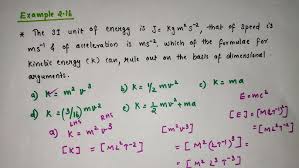 Example 2.16
* The SI unit of energy is J = kg m² s⁻², that of speed is
ms⁻¹ & of acceleration is ms⁻², which of the formulae for
kinetic energy (K) can, rule out on the basis of dimensional
arguments.
a) K = m² v³ b) K = ½ mv² c) K = ma
d) K = (3/16) mv² e) K = ½ mv² + ma
E = mc²
LHS RHS
a) K = m² v³ [m² v³] [E] = [M (LT⁻¹)²]
[K] = [ML²T⁻²] = [M² (LT⁻¹)³] = [ML²T⁻²]
= [M² L³ T⁻³]